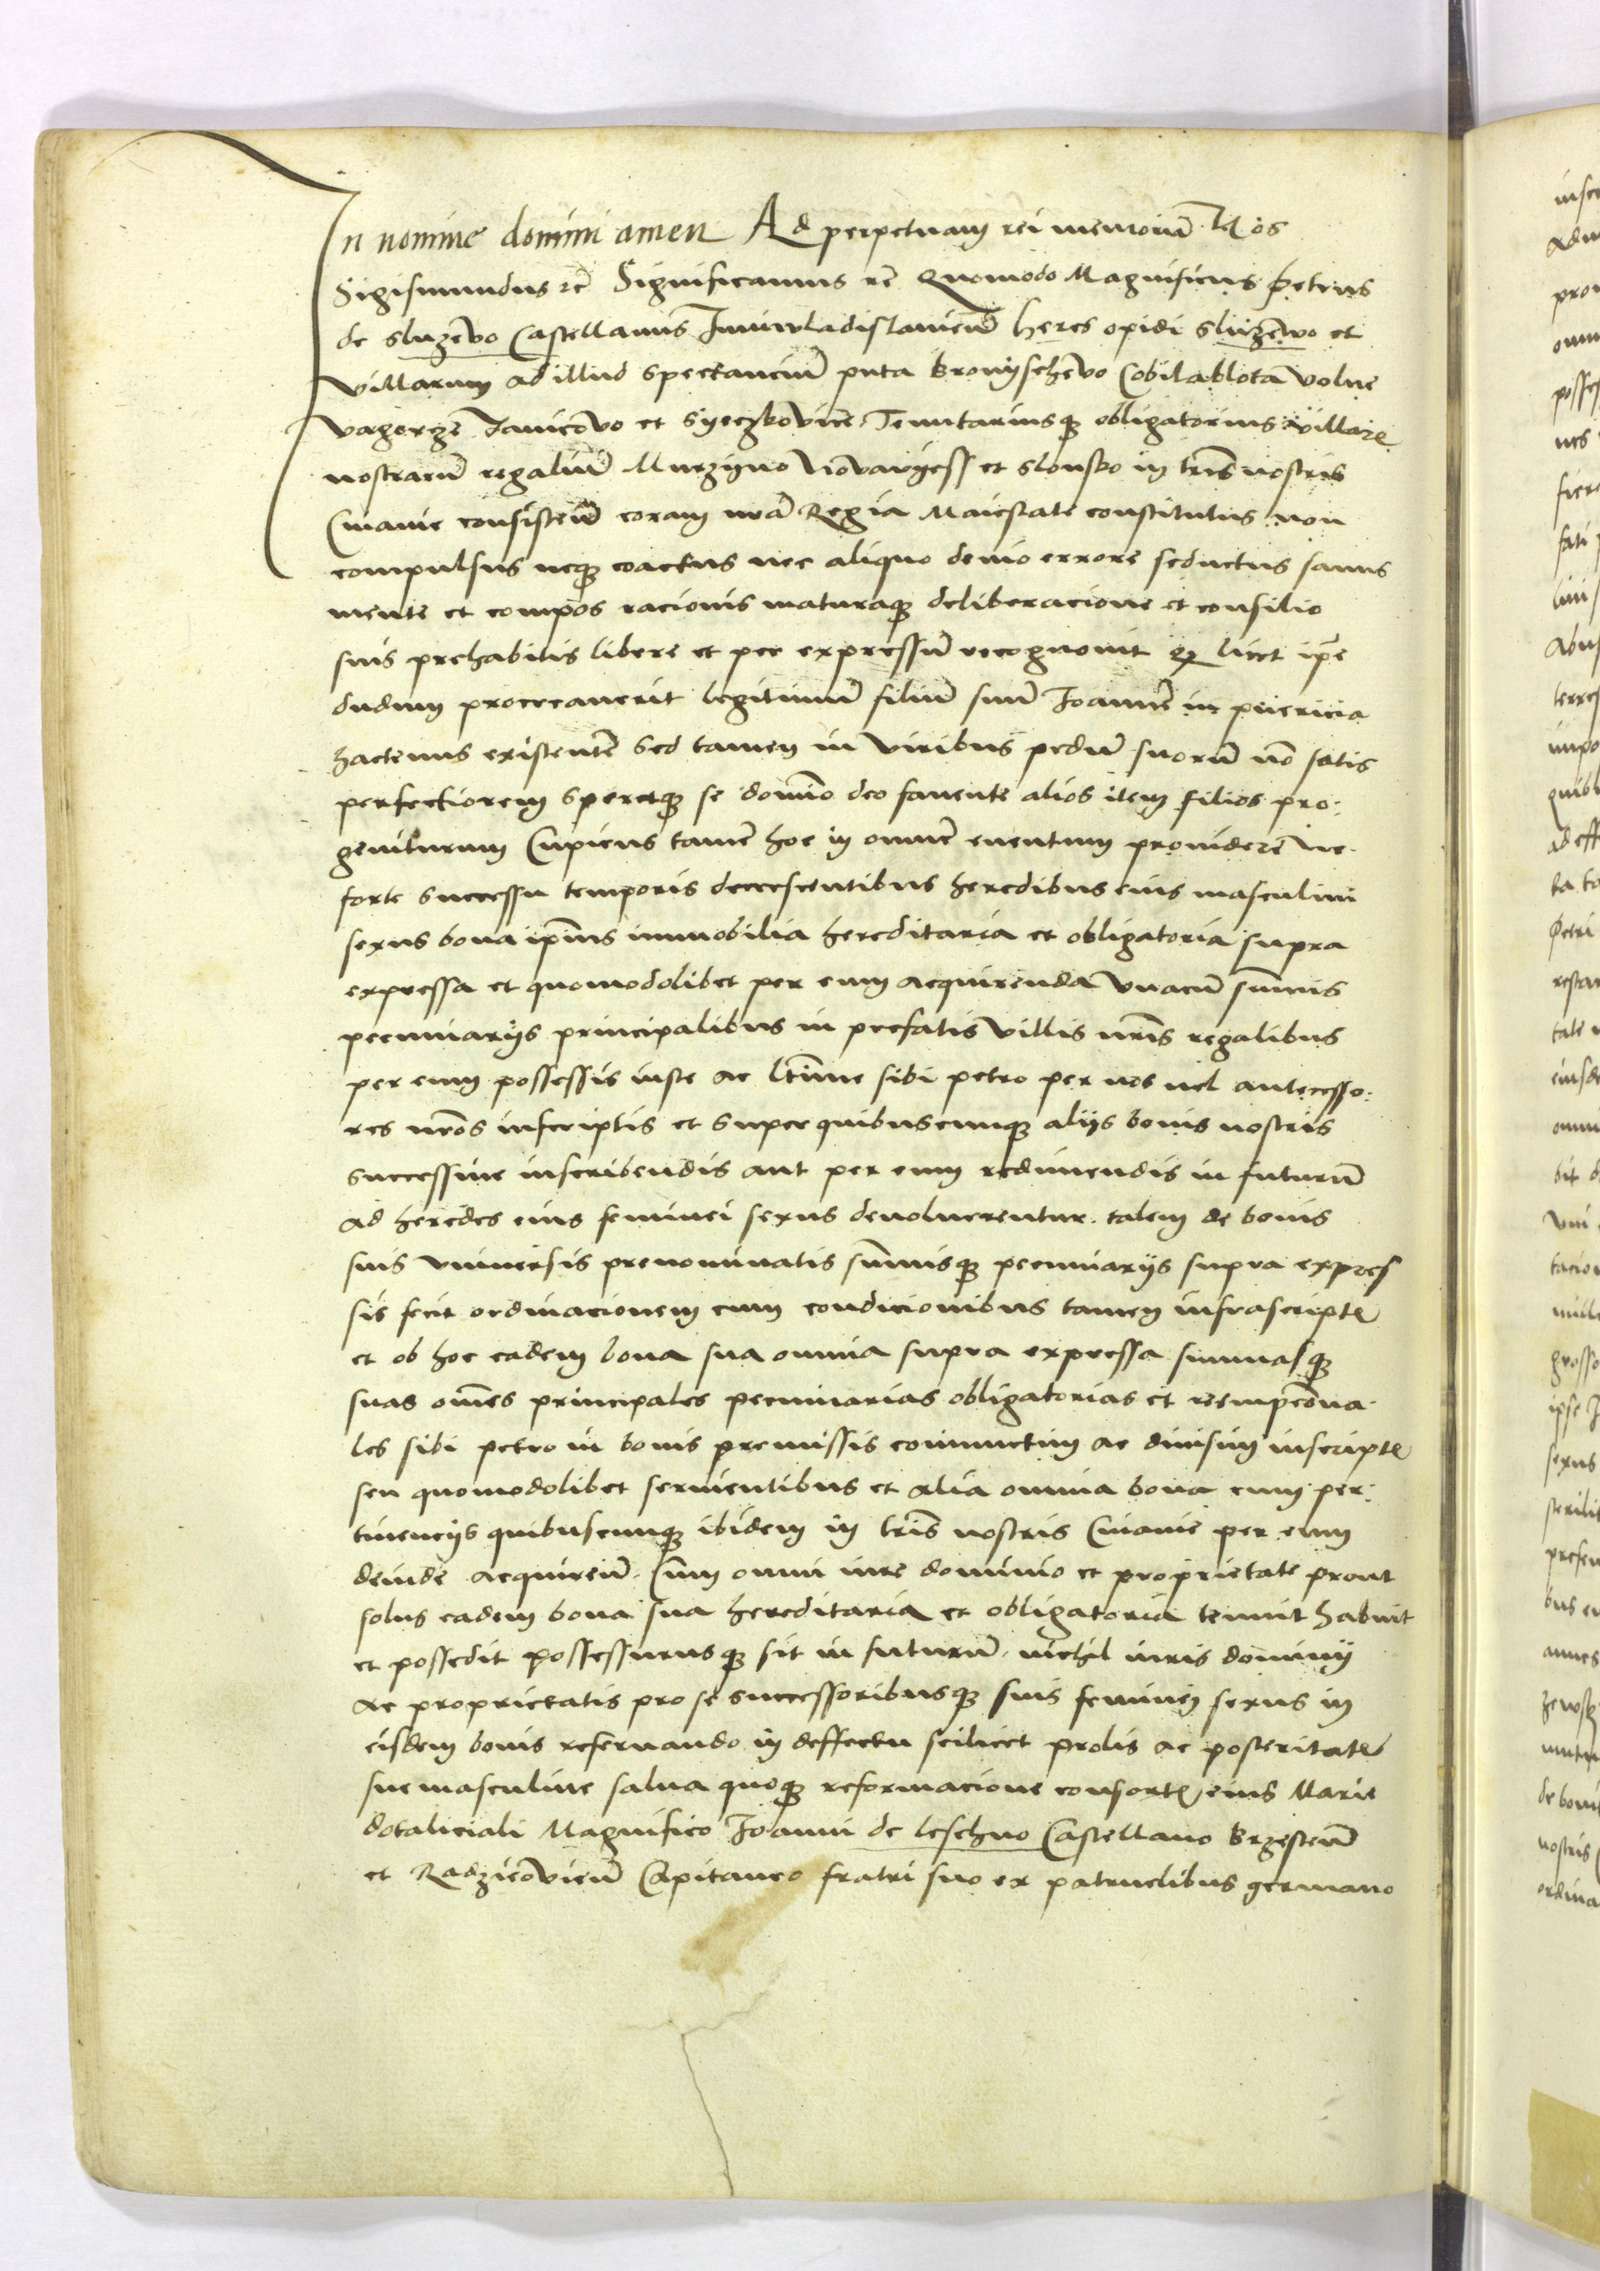 In nomine domini amen Ad perpetuam rei memoriā Nos
Sigismundus ꝛc̄ Significamus ꝛc̄ Quomodo Magnificus Petrus
de Sluzēvo Castellanus Iuniwladislavieñ heres opidi Sluzēwo et
villarum ad illud spectanciū puta Bronyschēvo Cobilablotā volue
vagorze Janicovo et Syeczkovice Tenutariusqȝ obligatorius villarꝫ
nostrarū regaliū Murzyno Novavyess et Slonsko in tr̄is nostris
Cuiavie consisteñ coram nrā Regia Maiestate constitutus non
compulsus neqȝ coactus nec aliquo devio errore seductus sanus
mente et compos racionis maturaqȝ deliberacione et consilio
suis prehabitis libere et per expressū recognovit qꝫ licet ip̄e
dudum procreaverit legitimū filiū suū Joannē in puericia
hactenus existentē sed tamen in viribus pedū suorū nō satis
perfectiorem speretqȝ se domīo deo favente alios item filios pro:
geniturum Cupiens tamē hoc in omnē eventum providere ne
forte successu temporis decrescentibus heredibus eius masculini
sexus bona ip̄ius immobilia hereditaria et obligatoria supra
expressa et quomodolibet per eum acquirenda unacū sūmis
pecuniarijs principalibus in prefatis villis nr̄is regalibus
per eum possessis iuste ac l̄time sibi petro per nos vel antecesso:
res nr̄os inscriptis et super quibuscunqȝ alijs bonis nostris
successive inscribendis aut per eum redimendis in futurū
ad heredes eius feminei sexus devolverentur talem de bonis
suis universis prenominatis sūmisqȝ pecuniarijs supra expres
sis fecit ordinacionem cum condicionibus tamen infrascriptꝭ
et ob hoc eadem bona sua omnia supra expressa summasqȝ
suas om̄es principales pecuniarias obligatorias et reempcōna
les sibi petro in bonis premissis coniunctim ac divisim inscriptꝭ
seu quomodolibet servientibus et alia omnia bona cum per:
tinencijs quibuscunqȝ ibidem in tr̄is nostris Cuiavie per eum
deinde acquireñ. Cum omni iure dominio et proprietate prout
solus eadem bona sua hereditaria et obligatoria tenuit habuit
et possedit possessurusqȝ sit in futurū nichil iuris dominij
ac proprietatis pro se successoribusqȝ suis feminei sexus in
eisdem bonis reservando in deffectu scilicet prolis ac posteritatꝭ
sue masculine salva quoqȝ reformacione consortꝭ eius Marie
dotaliciali Magnifico Joanni de leschno Castellano Brzesteñ
et Radzieovieñ Capitaneo fratri suo ex patruelibus germano